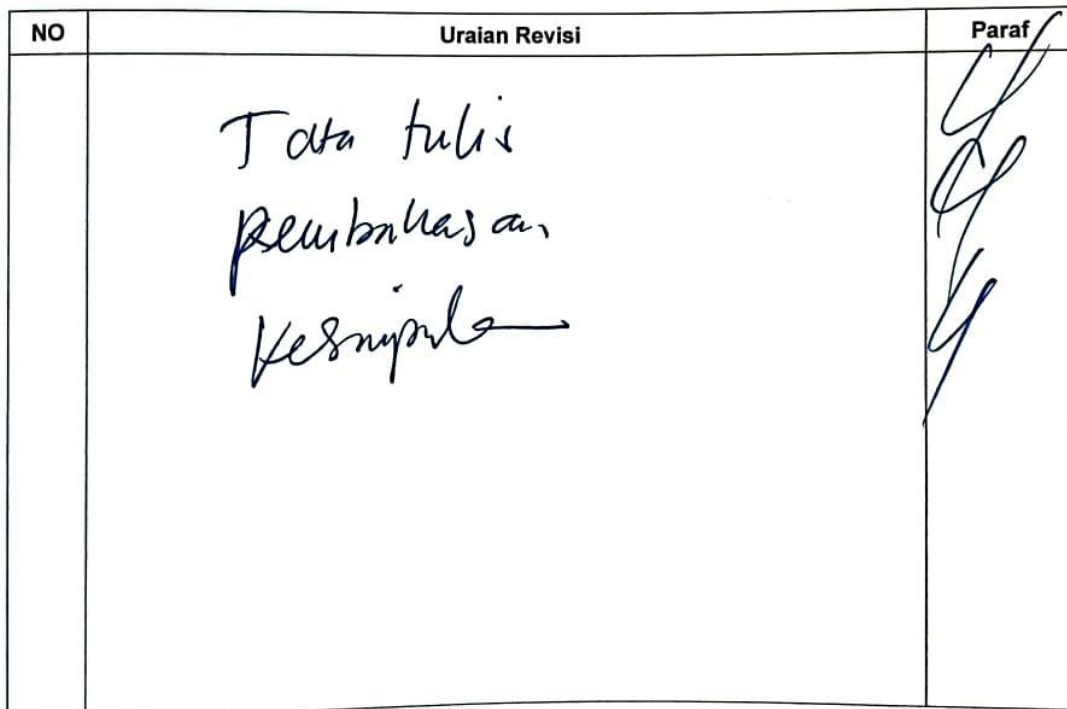 NO Uraian Revisi Paraf
Tata tulis
pembahasan
Kesimpulan